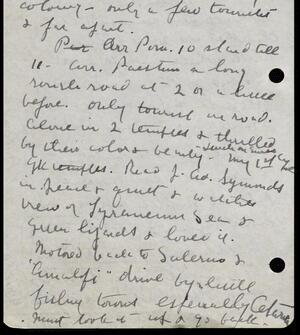 colony - only a few tourists
& far apart.
Arr Pom. 10 stand till
11 - arr. Paestum a long
road at 2 or a little
before. Only tourist on road.
Alone in 2 temples & thrilled
by their color & beauty - Lunch in ruins
My 1st
GK temples. Read J. Ad. Symonds
in peace & quiet & with
view of Tyranenum Sea &
green lizards & loved it.
Motored back to Salerno &
"Amalfi" drive by
fishing towns especially Cetara
Must look it up & go back.